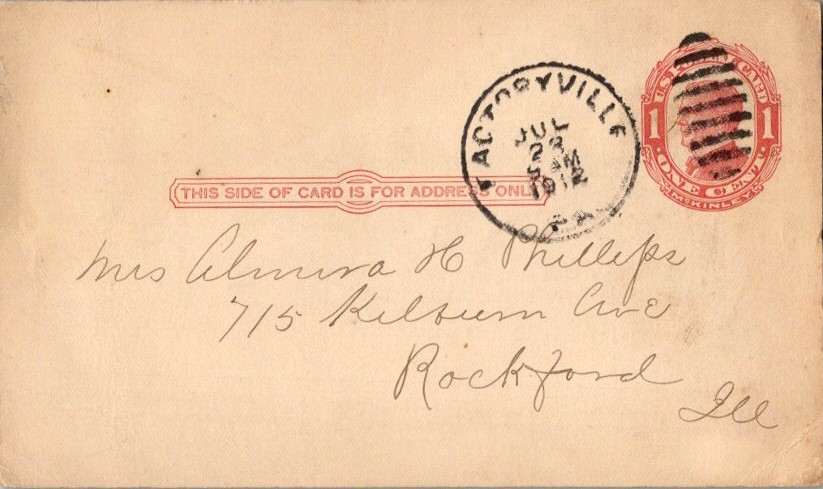 U.S. POSTAL CARD
1 1
ONE CENT
McKINLEY
FACTORYVILLE
JUL
1912
PA.
THIS SIDE OF CARD IS FOR ADDRESS ONLY
Mrs Almira H Phillips
715 Kilburn Ave
Rockford
Ill